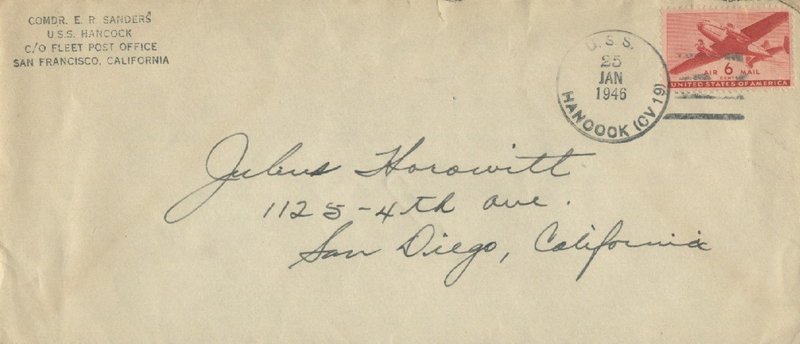 COMDR. E. R. SANDERS
U.S.S. HANCOCK
C/O FLEET POST OFFICE
SAN FRANCISCO, CALIFORNIA
U.S.S.
25
JAN
1946
HANCOCK (CV 19)
AIR 6 MAIL
CENTS
UNITED STATES OF AMERICA
Julius Horowitt
1125-4th ave.
San Diego, California